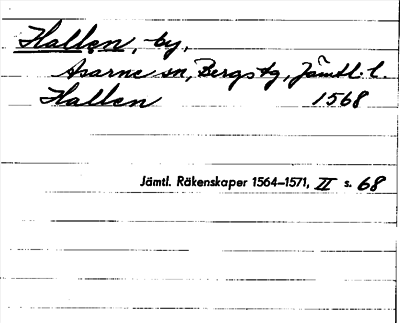 Hallen, by,
Asarne sn, Bergs tg, Jämtl. l.
Hallen 1568
Jämtl. Räkenskaper 1564–1571, II s. 68